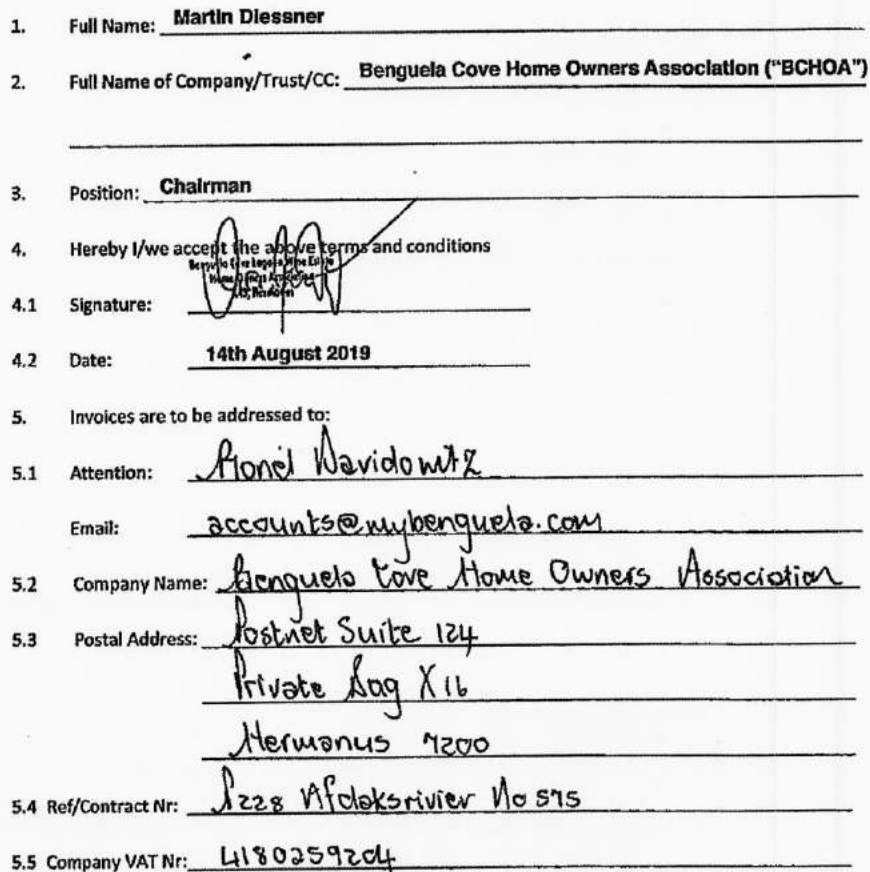 1. Full Name: Martin Diessner
2. Full Name of Company/Trust/CC: Benguela Cove Home Owners Association ("BCHOA")
3. Position: Chairman
4. Hereby I/we accept the above terms and conditions
Benguela Cove Lagoon Wine Estate
Home Owners Association
4.1 Signature:
4.2 Date: 14th August 2019
5. Invoices are to be addressed to:
5.1 Attention: Davidowitz
Email: accounts@mybenguela.com
5.2 Company Name: Benguela Cove Home Owners Association
5.3 Postal Address: Postnet Suite 124
Private Bag X16
Hermanus 7200
5.4 Ref/Contract Nr: Afdaksrivier No 575
5.5 Company VAT Nr: 4180259204